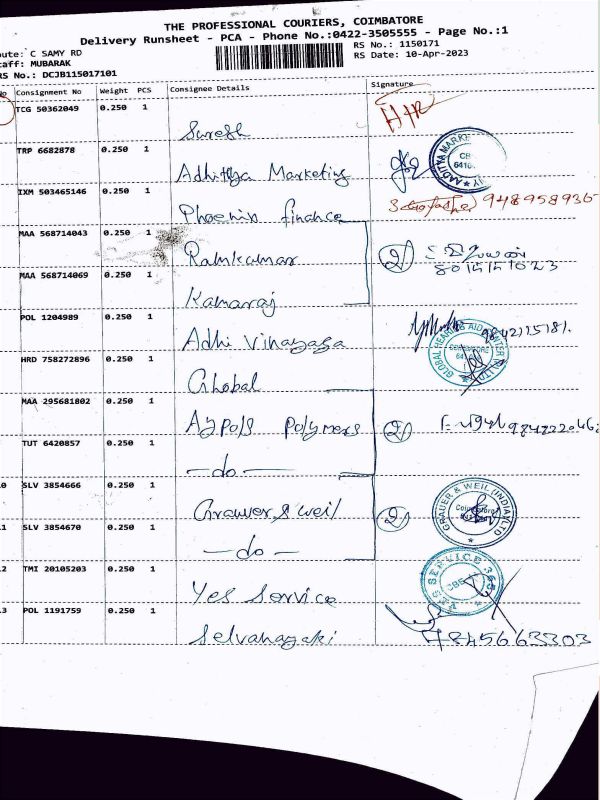 THE PROFESSIONAL COURIERS, COIMBATORE
Delivery Runsheet - PCA - Phone No.:0422-3505555 - Page No.:1
oute: C SAMY RD RS No.: 1150171
taff: MUBARAK RS Date: 10-Apr-2023
RS No.: DCJB115017101
No Consignment No Weight PCS Consignee Details Signature
TCG 50362049 0.250 1
Suresh
TRP 6682878 0.250 1
Adhithya Marketing
IXM 503465146 0.250 1
Phoenix finance 948958936
MAA 568714043 0.250 1
Ramkumar 2
MAA 568714069 0.250 1
Kamaraj
POL 1204989 0.250 1
Adhi Vinayaga 9842115181.
HRD 758272896 0.250 1
Ghobal
GLOBAL HEARING AID CENTER
MAA 295681802 0.250 1
polymers 2
TUT 6420857 0.250 1
-do-
0 SLV 3854666 0.250 1
Grauer & weil 2
GRAUER & WEIL (INDIA) LTD
1 SLV 3854670 0.250 1
-do-
2 TMI 20105203 0.250 1
Yes Service
YES SERVICE 365
3 POL 1191759 0.250 1
Selvanayaki 7845663303